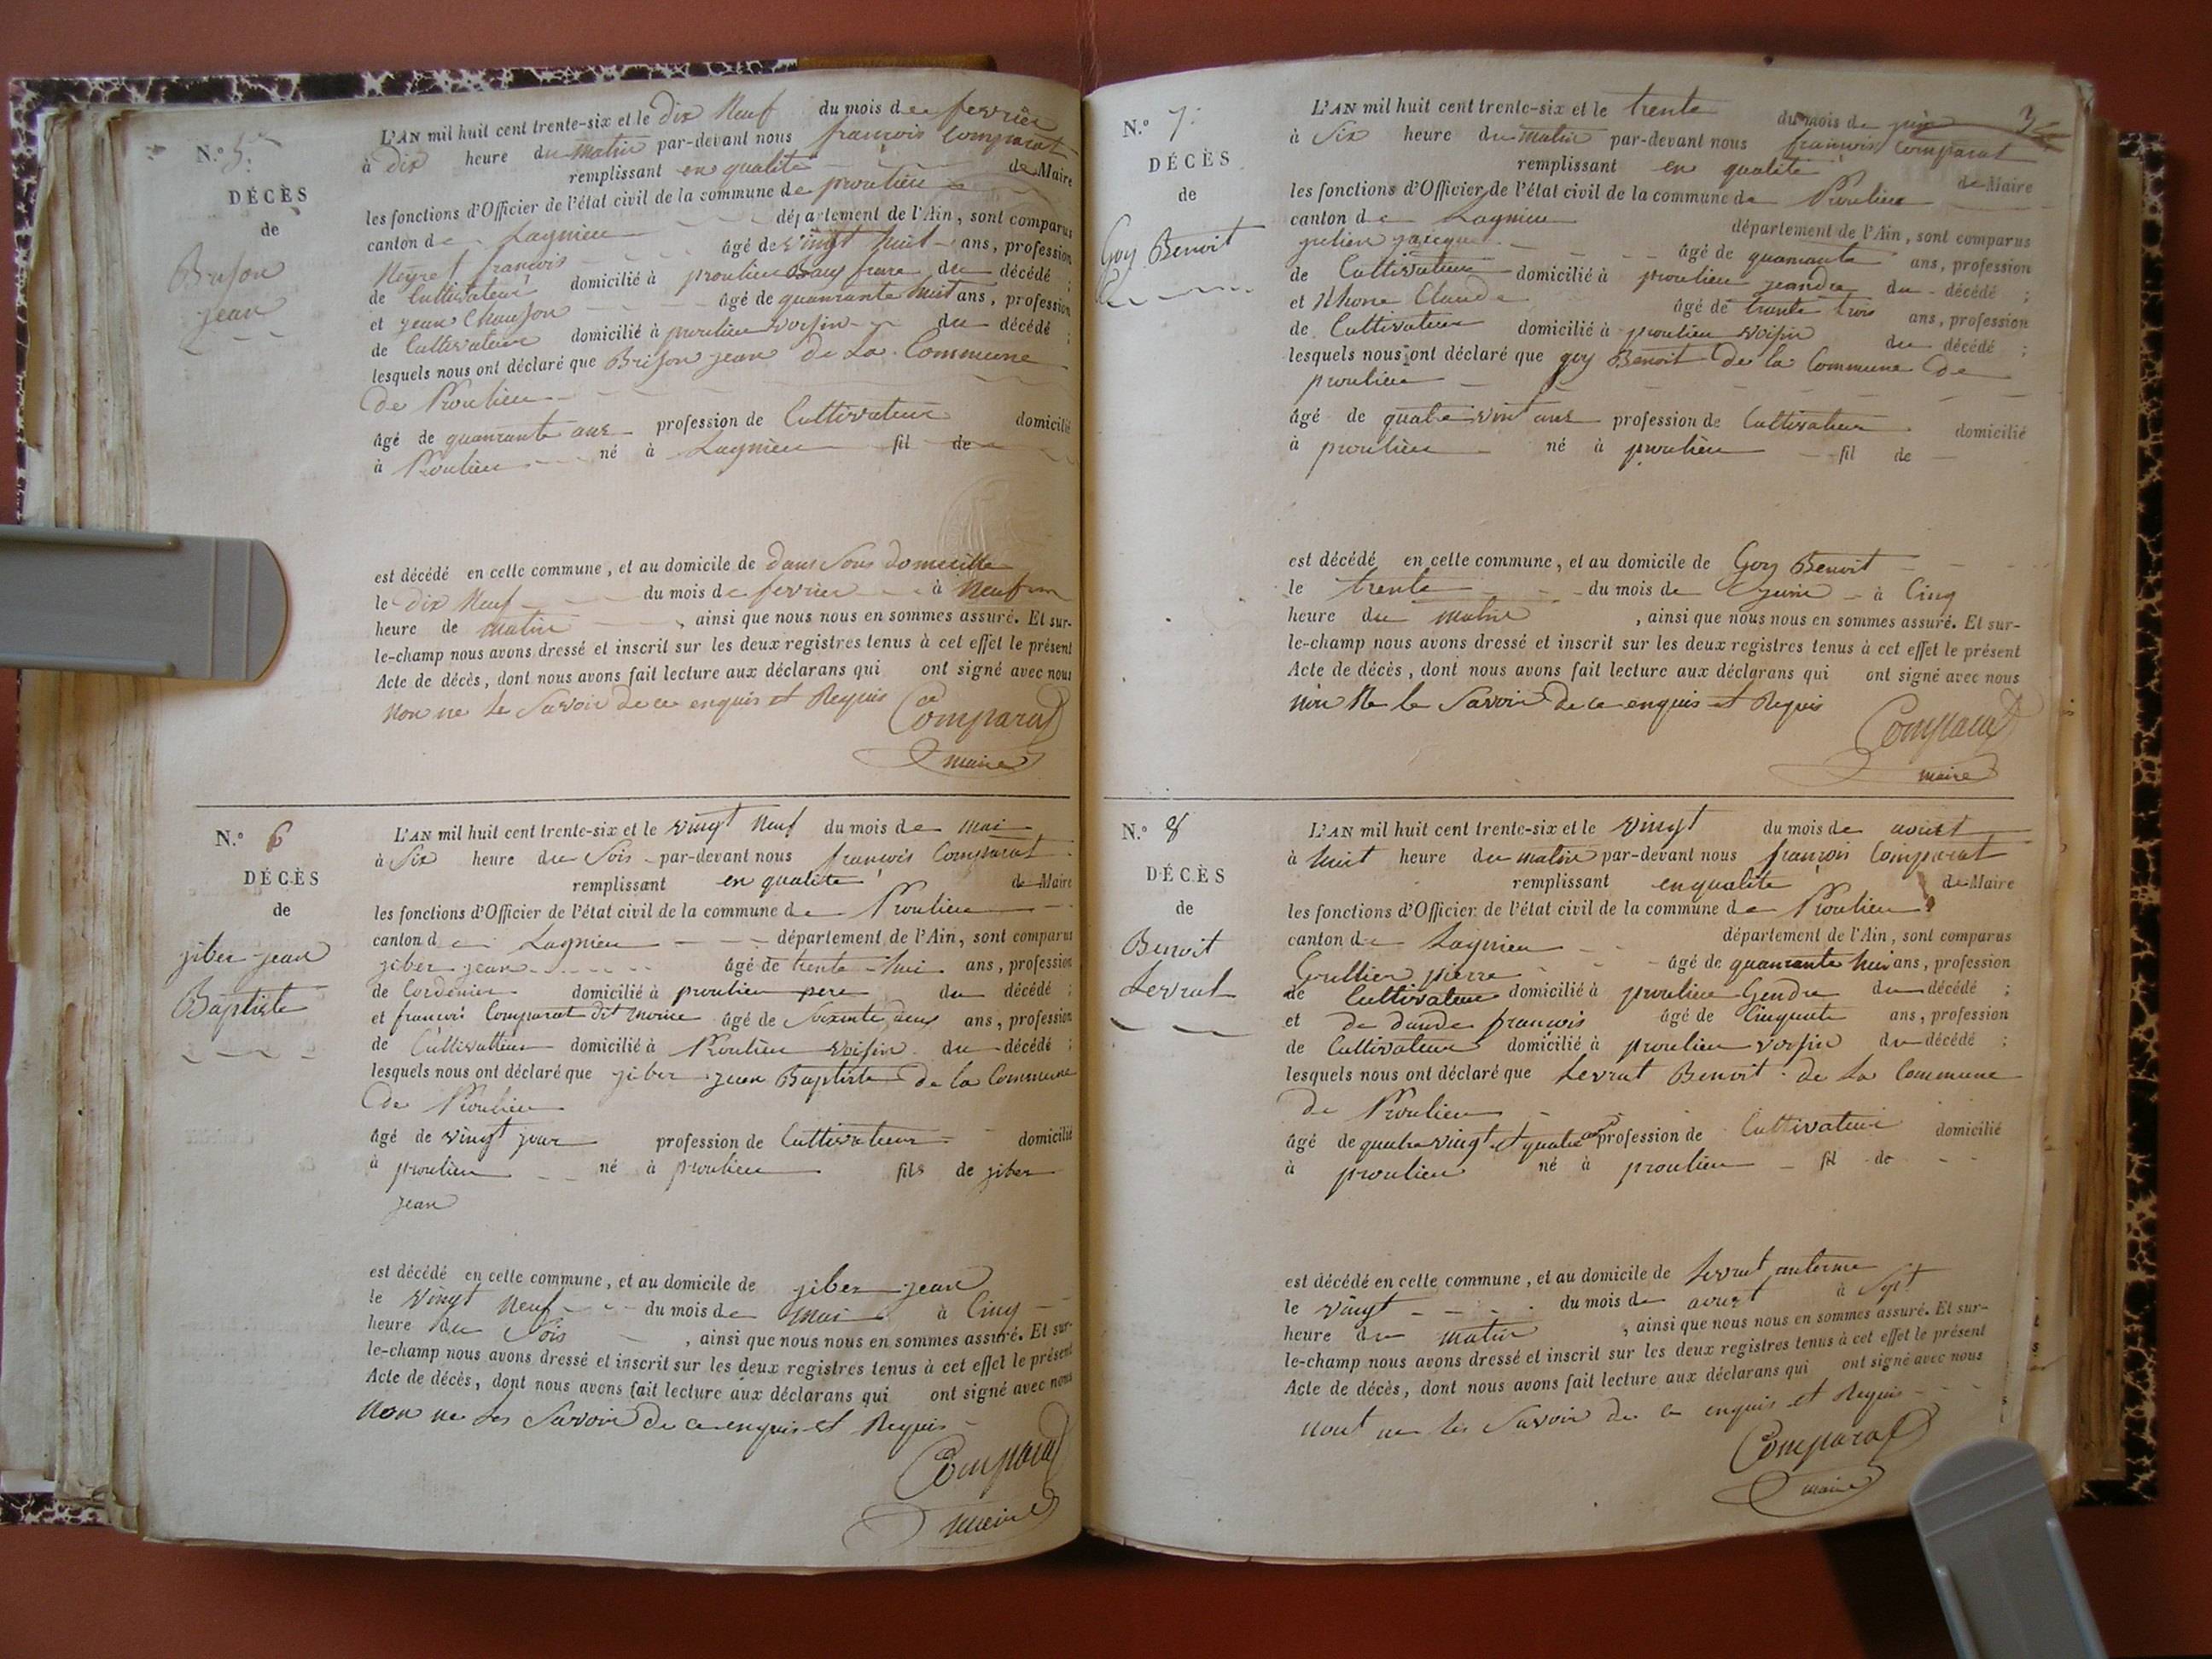 N.º 5.
DÉCÈS
de
Brison
jean
L'AN mil huit cent trente-six et le dix Neuf du mois de fevrier
à dix heure du matin par-devant nous françois Comparat
remplissant en qualité de Maire
les fonctions d'Officier de l'état civil de la commune de proulieu
canton de Lagnieu département de l'Ain, sont comparus
françois âgé de vingt huit ans, profession
de Cultivateur domicilié à proulieu Beau frere du décédé ;
et jean Chauson âgé de quanrante huit ans, profession
de Cultivateur domicilié à proulieu voisin du décédé ;
lesquels nous ont déclaré que Brison jean de La Commune
De Proulieu
âgé de quanrante ans profession de Cultivateur domicilié
à Proulieu né à Lagnieu fil de
est décédé en cette commune, et au domicile de dans Sons domicille
le dix Neuf du mois de fevrier à Neuf
heure de matin , ainsi que nous nous en sommes assuré. Et sur-
le-champ nous avons dressé et inscrit sur les deux registres tenus à cet effet le présent
Acte de décès, dont nous avons fait lecture aux déclarans qui ont signé avec nous
Non ne le Savoir de ce enquis et Requis Comparat
maire
N.º 6
DÉCÈS
de
jiber jean
Baptiste
L'AN mil huit cent trente-six et le vingt Neuf du mois de mai
à Six heure du Soir par-devant nous françois Comparat
remplissant en qualité de Maire
les fonctions d'Officier de l'état civil de la commune de Proulieu
canton de Lagnieu département de l'Ain, sont comparus
jiber jean âgé de trente hui ans, profession
de Cordonier domicilié à proulieu pere du décédé ;
et françois Comparat dit âgé de Soixente deux ans, profession
de Cultivatteur domicilié à Proulieu voisin du décédé ;
lesquels nous ont déclaré que jiber jean Baptiste de la Commune
De Proulieu
âgé de vingt jour profession de Cultivateur domicilié
à proulieu né à proulieu fils de jiber
jean
est décédé en cette commune, et au domicile de jiber jean
le vingt Neuf du mois de mai à Cinq
heure du Soir , ainsi que nous nous en sommes assuré. Et sur-
le-champ nous avons dressé et inscrit sur les deux registres tenus à cet effet le présent
Acte de décès, dont nous avons fait lecture aux déclarans qui ont signé avec nous
Non ne les Savoir De ce enquis et Requis
Comparat
maire
3
N.º 7.
DÉCÈS
de
Goy Benoit
L'AN mil huit cent trente-six et le trente du mois de juin
à Six heure du matin par-devant nous françois Comparat
remplissant en qualité de Maire
les fonctions d'Officier de l'état civil de la commune de Proulieu
canton de Lagnieu département de l'Ain, sont comparus
julien jacque âgé de quanrante ans, profession
de Cultivateur domicilié à proulieu jeandre du décédé ;
et Rhone Claude âgé de trante trois ans, profession
de Cultivateur domicilié à proulieu voisin du décédé ;
lesquels nous ont déclaré que goy Benoit De la Commune De
proulieu
âgé de quatre vint ans profession de Cultivateur domicilié
à proulieu né à proulieu fil de
est décédé en cette commune, et au domicile de Goy Benoit
le trente du mois de juin à Cinq
heure du matin , ainsi que nous nous en sommes assuré. Et sur-
le-champ nous avons dressé et inscrit sur les deux registres tenus à cet effet le présent
Acte de décès, dont nous avons fait lecture aux déclarans qui ont signé avec nous
non Ne le Savoir De ce enquis et Requis
Comparat
maire
N.º 8
DÉCÈS
de
Benoit
Levrat
L'AN mil huit cent trente-six et le vingt du mois de aoust
à huit heure du matin par-devant nous françois Comparat
remplissant en qualité de Maire
les fonctions d'Officier de l'état civil de la commune de Proulieu
canton de Lagnieu département de l'Ain, sont comparus
pierre âgé de quanrante hui ans, profession
de Cultivateur domicilié à proulieu Gendre du décédé ;
et françois âgé de Cinquante ans, profession
de Cultivateur domicilié à proulieu voisin du décédé ;
lesquels nous ont déclaré que Levrat Benoit de La Commune
De Proulieu
âgé de quatre vingt et quatre ans profession de Cultivateur domicilié
à proulieu né à proulieu fil de
est décédé en cette commune, et au domicile de Levrat antoine
le vingt du mois de aoust à Sept
heure du matin , ainsi que nous nous en sommes assuré. Et sur-
le-champ nous avons dressé et inscrit sur les deux registres tenus à cet effet le présent
Acte de décès, dont nous avons fait lecture aux déclarans qui ont signé avec nous
nont ne les Savoir de ce enquis et Requis
Comparat
maire